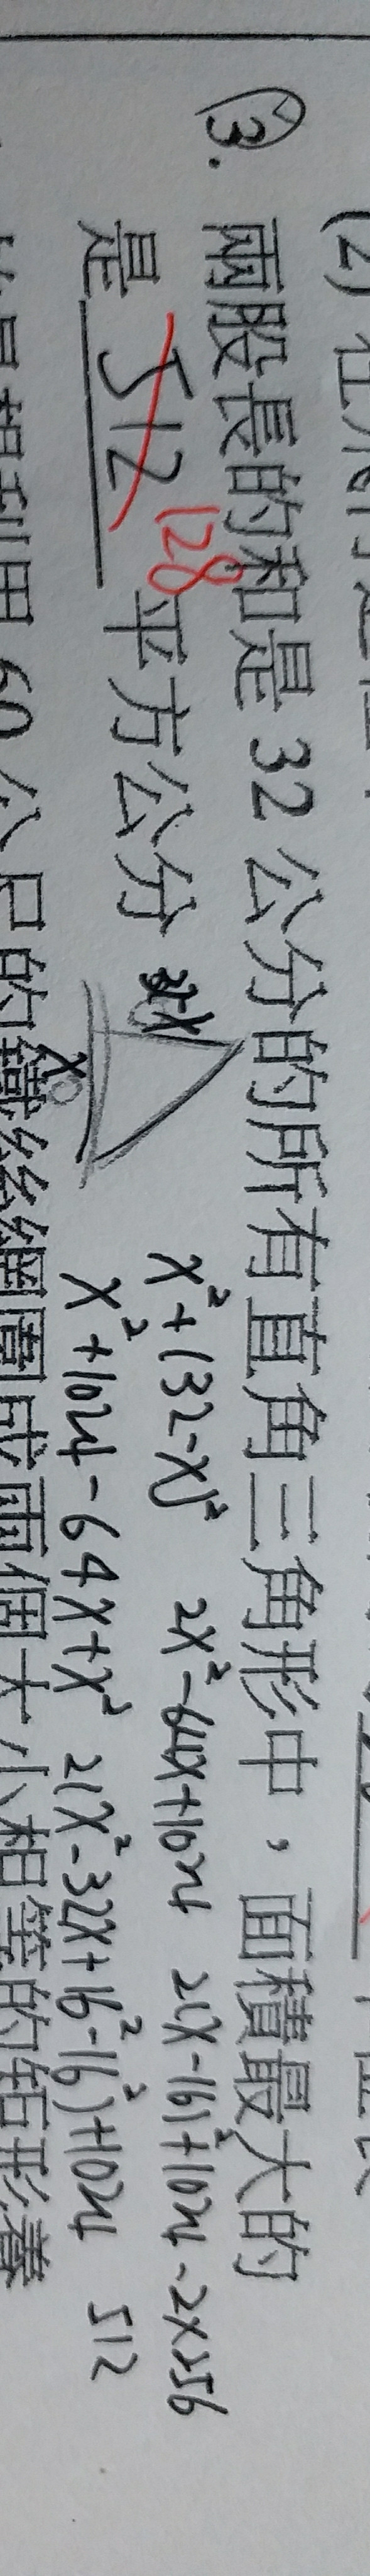 (2)
3. 兩股長的和是 32 公分的所有直角三角形中，面積最大的
是 512 128 平方公分
32-x
x
x²+(32-x)² 2x²-64x+1024 2(x-16)²+1024-2×256
x²+1024-64x+x² 2(x²-32x+16²-16²)+1024 512
60 公尺的鐵絲網圍成兩個大小相等的矩形養